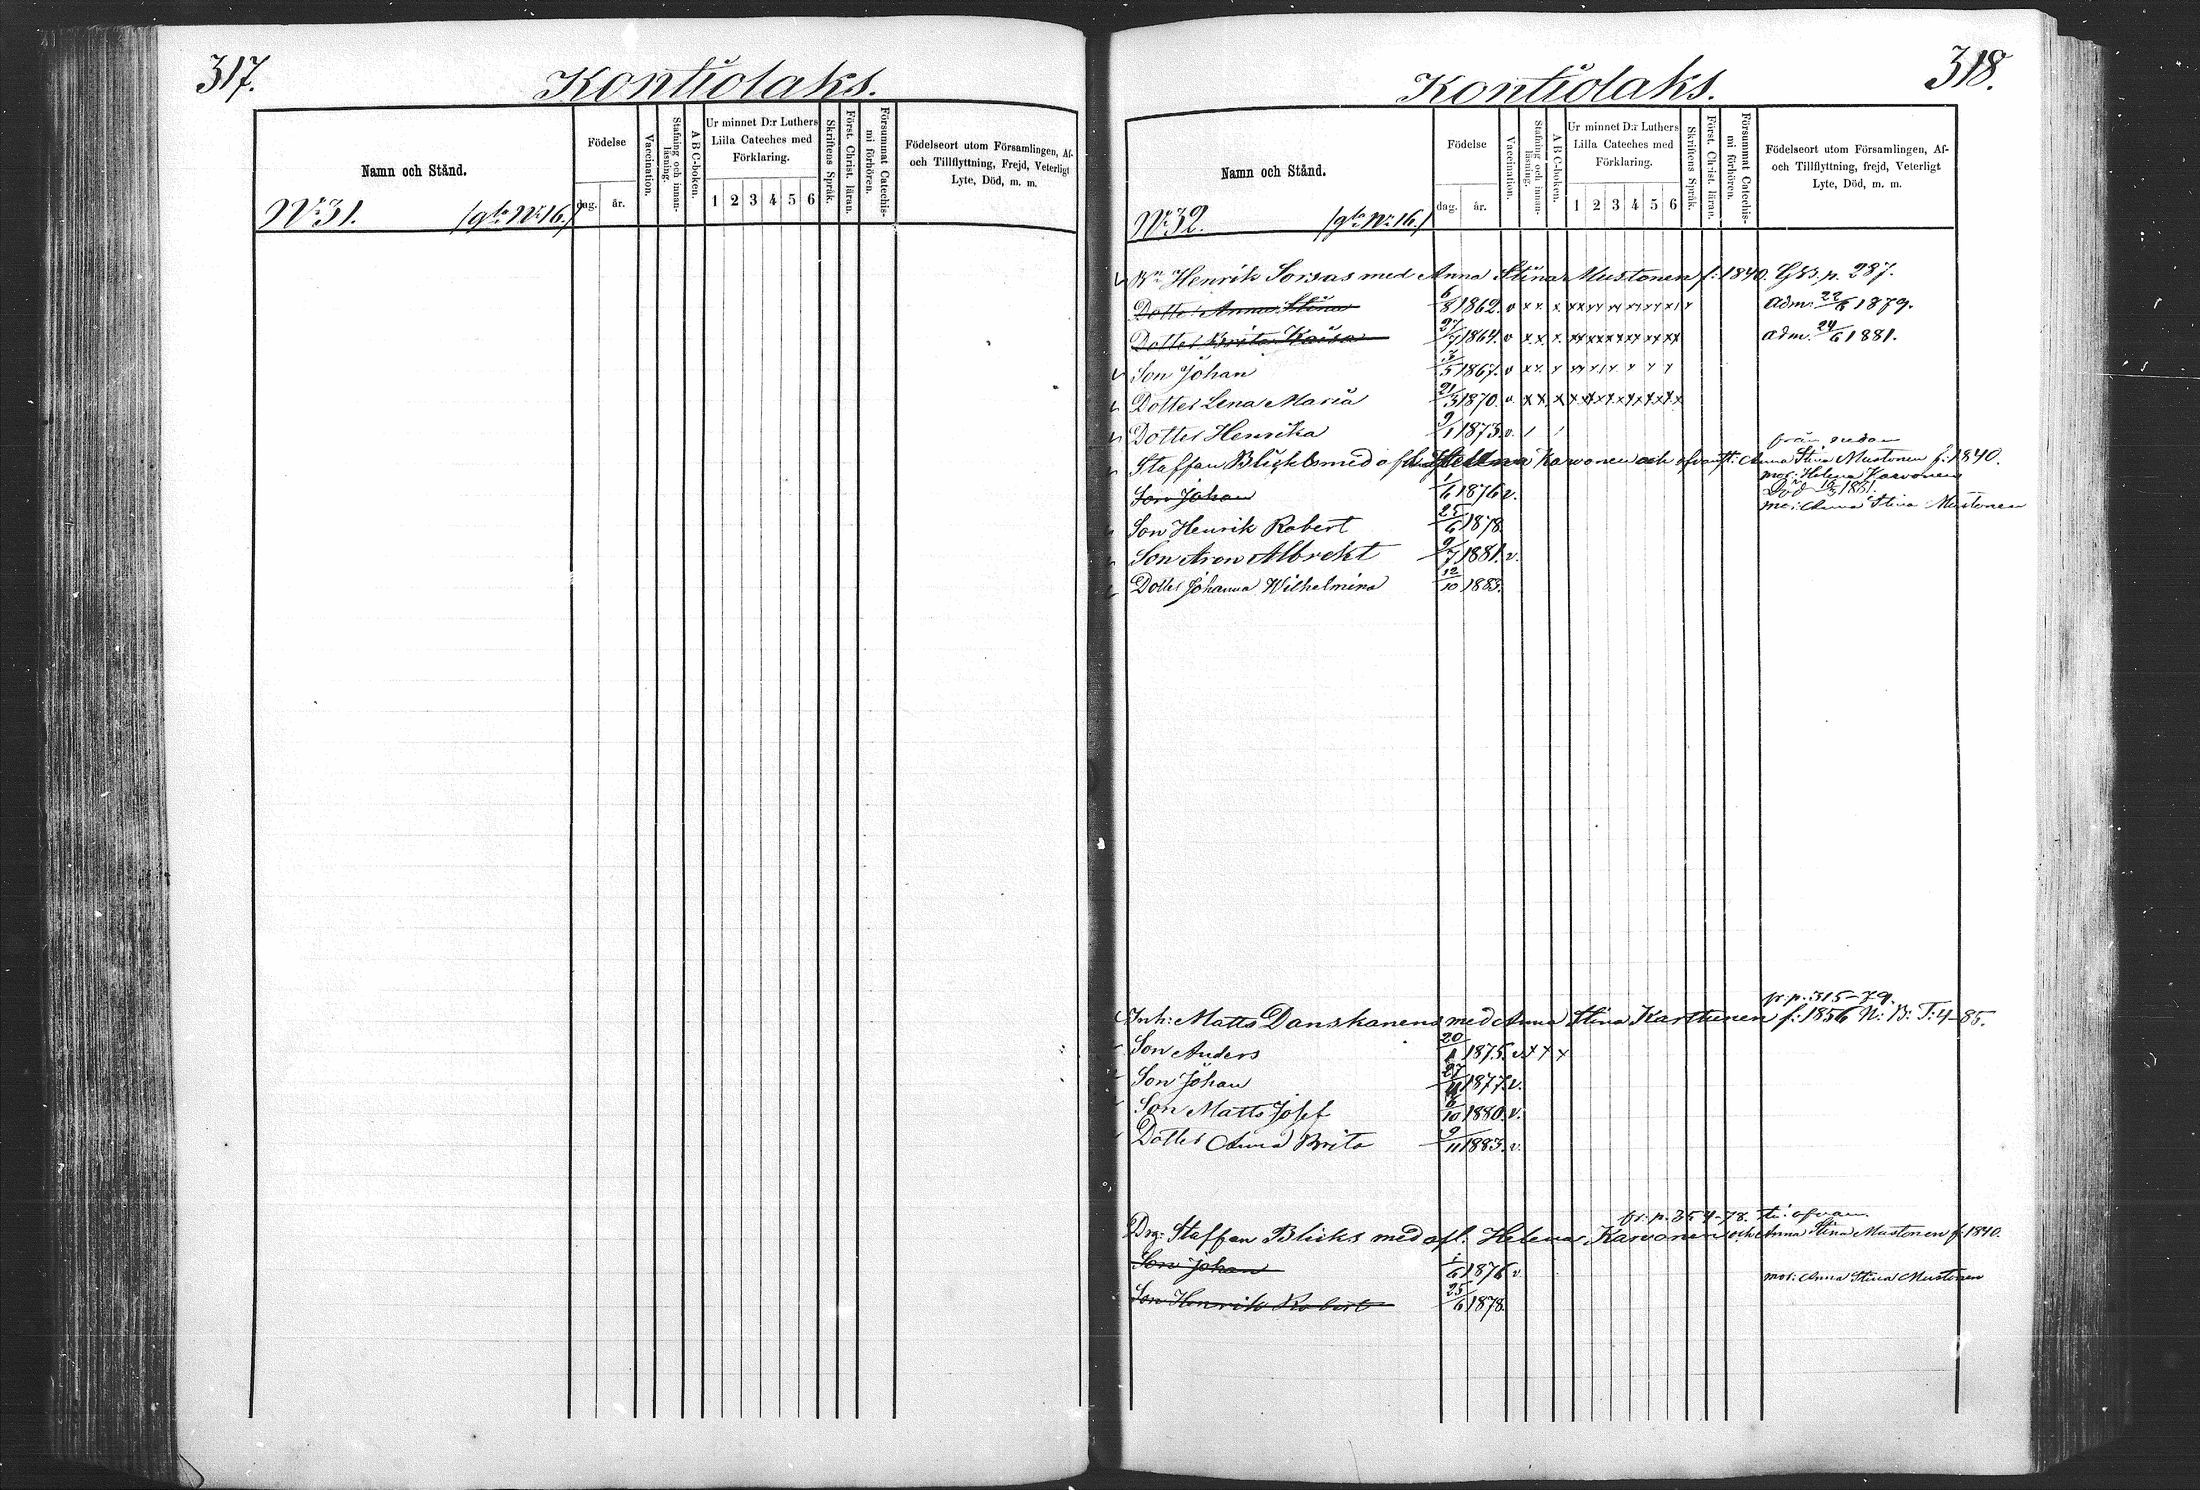 317.
Kontiolaks.
Namn och Stånd.
Födelse
dag.
år.
Vaccination.
Stafning och innan-
läsning.
ABC-boken.
Ur minnet D:r Luthers
Lilla Cateches med
Förklaring.
1 2 3 4 5 6
Skriftens Språk.
Först. Christ. läran.
Försummat Catechis-
mi förhören.
Födelseort utom Församlingen, Af-
och Tillflyttning, Frejd, Veterligt
Lyte, Död, m. m.
No 31. /gla No 16./
318.
Kontiolaks.
Namn och Stånd.
Födelse
dag.
år.
Vaccination.
Stafning och innan-
läsning.
ABC-boken.
Ur minnet D:r Luthers
Lilla Cateches med
Förklaring.
1 2 3 4 5 6
Skriftens Språk.
Först. Christ. läran.
Försummat Catechis-
mi förhören.
Födelseort utom Församlingen, Af-
och Tillflyttning, frejd, Veterligt
Lyte, Död, m. m.
No 32. /gla No 16./
Henrik Sorsas med Anna Stina Mustonen f: 1840. p. 287.
Dotter Anna Stina 6/8 1862. v xx x xx xx xx xx xx x adm. 22/6 1879.
Dotter Brita Kaisa 27/7 1864. v xx x xx xx xx xx xx xx adm. 24/6 1881.
Son Johan 13/5 1867. v xx x xx x x x x x
Dotter Lena Maria 21/3 1870. v. x x x x xx xx xx xx xx
Dotter Henrika 2/1 1873. v. / /
från nedan
Staffan Blicks med Helena Karvonen och Anna Stina Mustonen f: 1840.
mor: Helena Karvonen
Son Johan 1/6 1876 v. Död 10/3 1881.
mor: Anna Stina Mustonen
Son Henrik Robert 25/6 1878
Son Aron Albrekt 9/7 1881. v.
Dotter Johanna Wilhelmina 12/10 1883.
fr. p. 315-79.
Inh: Matts Danskanen med Anna Stina Karttunen f: 1856 N: B: T: 4-85.
Son Anders 20/1 1875. v x x x
Son Johan 27/11 1877. v.
Son Matts Josef 6/10 1880. v.
Dotter Anna Brita 9/11 1883. v.
fr. p. 354-78. ti. ofvan.
Drg: Staffan Blicks med afl. Helena Karvonen och Anna Stina Mustonen f. 1840.
Son Johan 1/6 1876 v.
mor: Anna Stina Mustonen
Son Henrik Robert 25/6 1878.